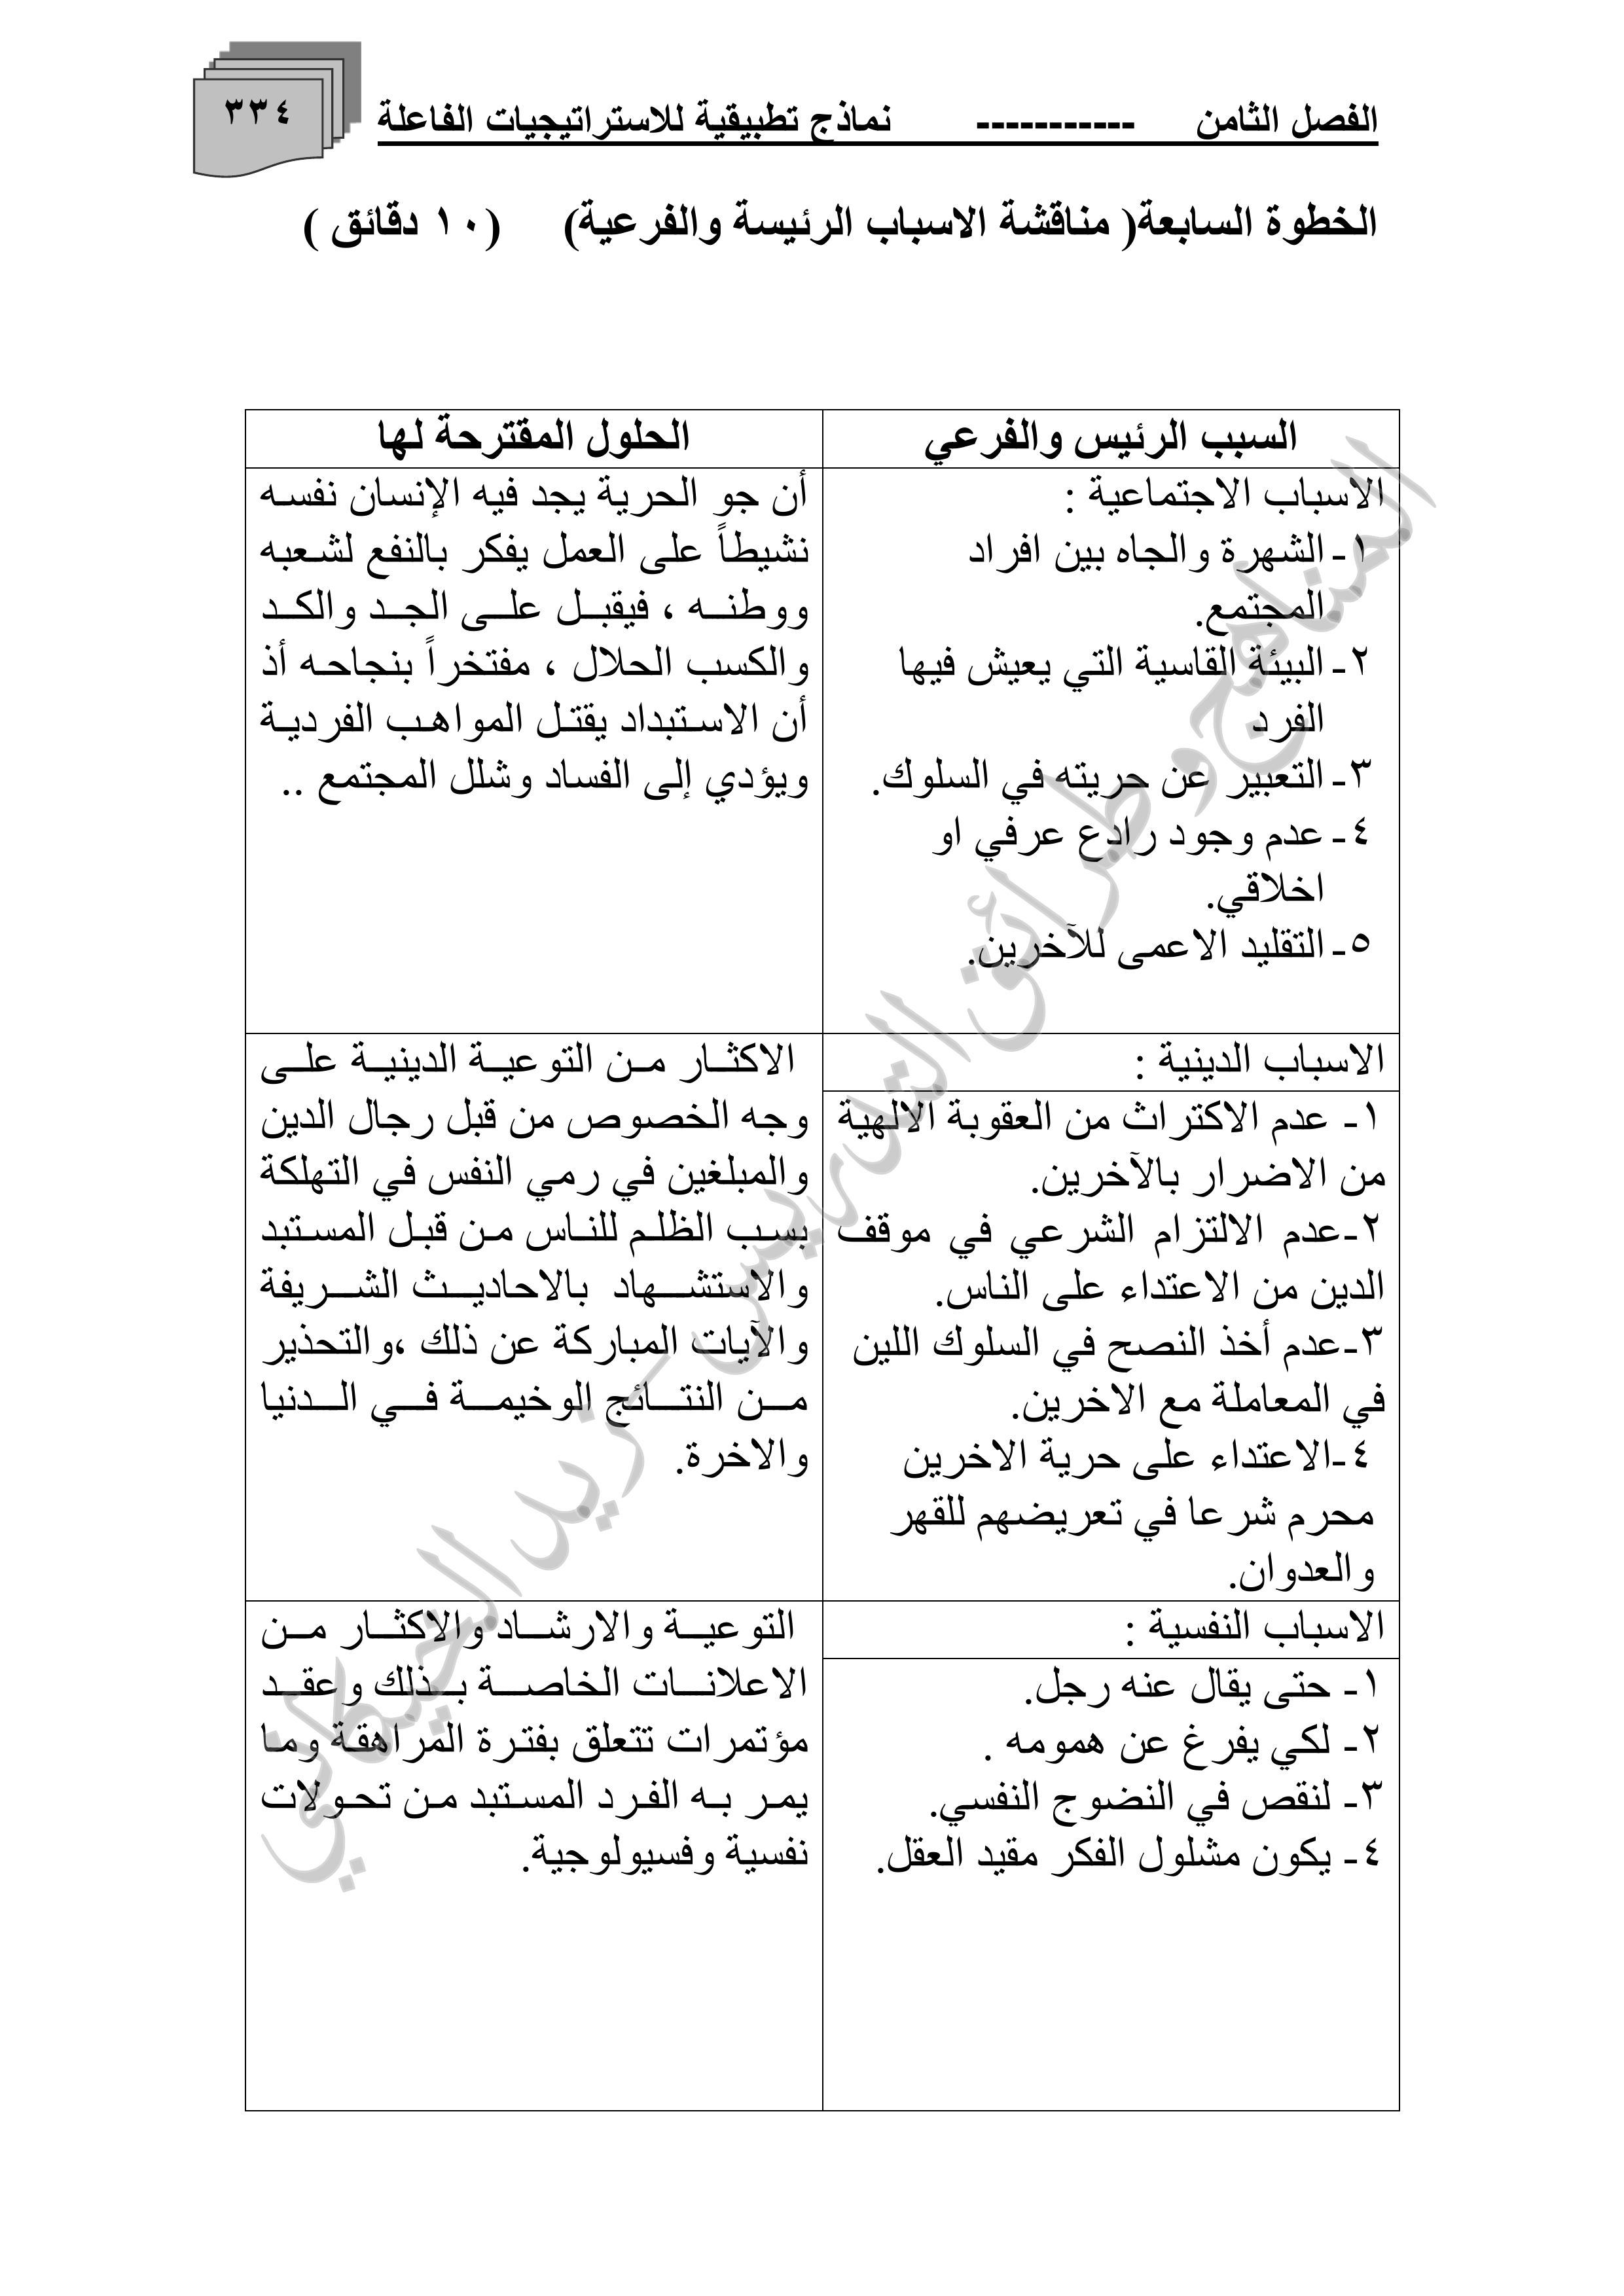 الفصل الثامن ----------- نماذج تطبيقية للاستراتيجيات الفاعلة
٣٣٤
الخطوة السابعة( مناقشة الاسباب الرئيسة والفرعية) (١٠ دقائق )
السبب الرئيس والفرعي
الحلول المقترحة لها
الاسباب الاجتماعية :
١- الشهرة والجاه بين افراد
المجتمع.
٢- البيئة القاسية التي يعيش فيها
الفرد
٣- التعبير عن حريته في السلوك.
٤- عدم وجود رادع عرفي او
اخلاقي.
٥- التقليد الاعمى للآخرين.
أن جو الحرية يجد فيه الإنسان نفسه
نشيطاً على العمل يفكر بالنفع لشعبه
ووطنه ، فيقبل على الجد والكد
والكسب الحلال ، مفتخراً بنجاحه أذ
أن الاستبداد يقتل المواهب الفردية
ويؤدي إلى الفساد وشلل المجتمع ..
الاسباب الدينية :
١- عدم الاكتراث من العقوبة الالهية
من الاضرار بالآخرين.
٢-عدم الالتزام الشرعي في موقف
الدين من الاعتداء على الناس.
٣-عدم أخذ النصح في السلوك اللين
في المعاملة مع الاخرين.
٤-الاعتداء على حرية الاخرين
محرم شرعا في تعريضهم للقهر
والعدوان.
الاكثار من التوعية الدينية على
وجه الخصوص من قبل رجال الدين
والمبلغين في رمي النفس في التهلكة
بسب الظلم للناس من قبل المستبد
والاستشهاد بالاحاديث الشريفة
والآيات المباركة عن ذلك ،والتحذير
من النتائج الوخيمة في الدنيا
والاخرة.
الاسباب النفسية :
١- حتى يقال عنه رجل.
٢- لكي يفرغ عن همومه .
٣- لنقص في النضوج النفسي.
٤- يكون مشلول الفكر مقيد العقل.
التوعية والارشاد والاكثار من
الاعلانات الخاصة بذلك وعقد
مؤتمرات تتعلق بفترة المراهقة وما
يمر به الفرد المستبد من تحولات
نفسية وفسيولوجية.
المناهج وطرائق التدريس - زيد الخيكاني